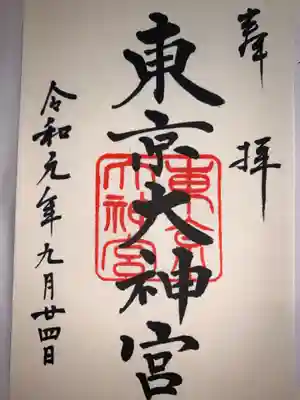 奉拝
東京大神宮
東京大神宮
令和元年九月廿四日